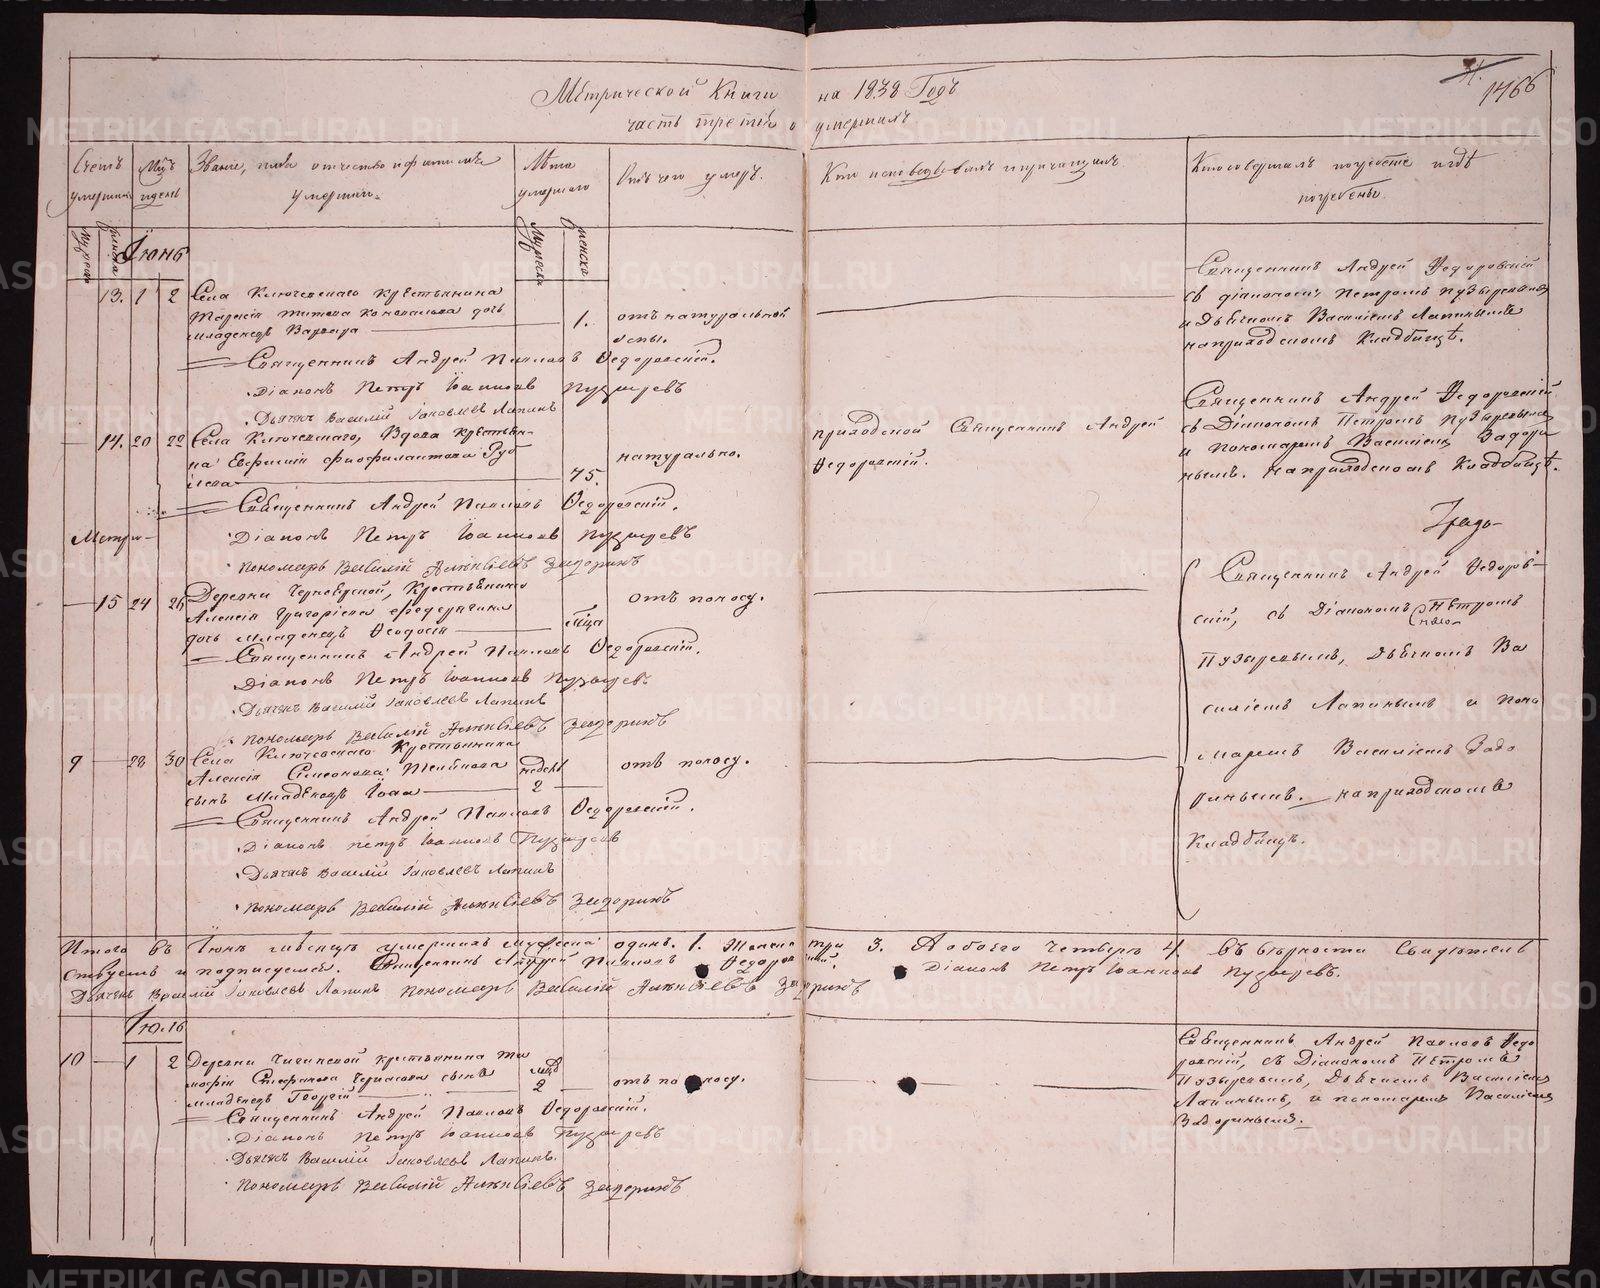 1466
Метрической Книги на 1838 Годъ
часть третія о умершихъ
Счетъ умершихъ
Мць и день
Званіе, имя отчество и фамилія умершихъ
Лѣта умершаго
Отъ чего умеръ.
Кто исповѣдывалъ и причащалъ
Кто совершалъ погребеніе и гдѣ погребены
Мужеска
Женска
Мужеска
Женска
Іюнь
13. 1 2 Села Ключевскаго крестьянина
Титова дочь
младенецъ Варвара 1. отъ натуральной
оспы.
Священникъ Андрей Павловъ Ѳедоровскій.
Діаконъ Петръ Іоанновъ Пузыревъ
Дьячекъ Василій Іаковлевъ Лапинъ
Священникъ Андрей Ѳедоровскій
съ діакономъ Петромъ Пузыревымъ
и Дьячкомъ Василіемъ Лапинымъ
на приходскомъ Кладбищѣ.
14. 20 22 Села Ключевскаго, Вдова крестьян-
ка Евфимія 75. натурально.
Священникъ Андрей Павловъ Ѳедоровскій.
Діаконъ Петръ Іоанновъ Пузыревъ
пономарь Василій Алексіевъ Задоринъ
приходской Священникъ Андрей
Ѳедоровскій.
Священникъ Андрей Ѳедоровскій
съ Діакономъ Петромъ Пузыревымъ
и пономаремъ Василіемъ Задори
нымъ. на приходскомъ Кладбищѣ.
Метри-
Градо-
15 24 26 Деревни Крестьянина
Алексія Григоріева
дочь младенецъ Ѳеодосія мца отъ поносу.
Священникъ Андрей Павловъ Ѳедоровскій.
Діаконъ Петръ Іоанновъ Пузыревъ
Дьячекъ Василій Іаковлевъ Лапинъ
пономарь Василій Алексіевъ Задоринъ
9 28 30 Села Ключевскаго Крестьянина
Алексія Симеонова
сынъ младенецъ Іоаннъ недель 2 отъ поносу.
Священникъ Андрей Павловъ Ѳедоровскій.
Діаконъ петръ Іоанновъ Пузыревъ
Дьячекъ Василій Іаковлевъ Лапинъ
пономарь Василій Алексіевъ Задоринъ
Священникъ Андрей Ѳедоров-
скій, съ Діакономъ Петромъ
Пузыревымъ, Дьячкомъ Ва
силіемъ Лапинымъ и поно
маремъ Василіемъ Задо
ринымъ. на приходскомъ
Кладбищѣ.
Итого въ Іюнѣ мѣсяцѣ умершихъ мужеска одинъ. 1. Женска три 3. А обоего четверо 4. Въ вѣрности Свидѣтель
ствуемъ и подписуемся. Священникъ Андрей Павловъ Ѳедоровскій. Діаконъ Петръ Іоанновъ Пузыревъ.
Дьячекъ Василій Іаковлевъ Лапинъ пономарь Василій Алексіевъ Задоринъ
10 1 2 Деревни крестьянина Ти
мофія Стефанова сынъ
младенецъ Георгій 2 отъ поносу.
Священникъ Андрей Павловъ Ѳедоровскій.
Діаконъ Петръ Іоанновъ Пузыревъ
Дьячекъ Василій Іаковлевъ Лапинъ.
пономарь Василій Алексіевъ Задоринъ
Священникъ Андрей Павловъ Ѳедо
ровскій, съ Діакономъ Петромъ
Пузыревымъ, Дьячкомъ Василіемъ
Лапинымъ, и пономаремъ Василіемъ
Задоринымъ.
METRIKI.GASO-URAL.RU